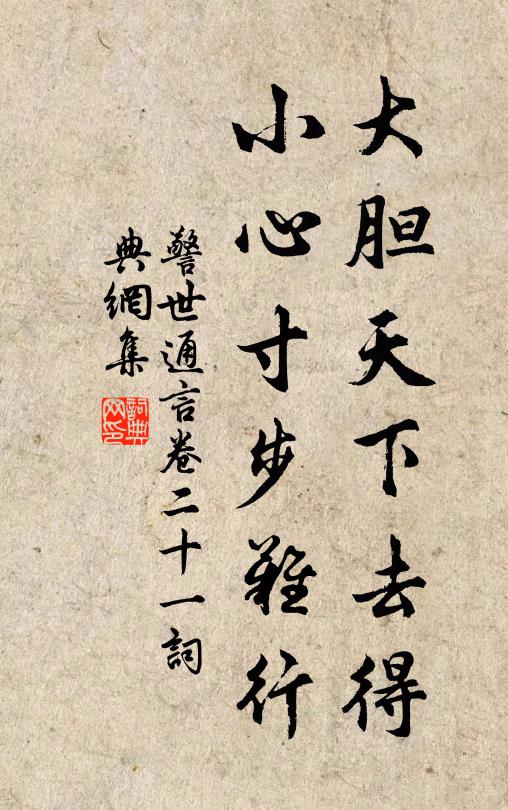 大胆天下去得
小心寸步難行
警世通言卷二十一詞
典網集
詞典
网印